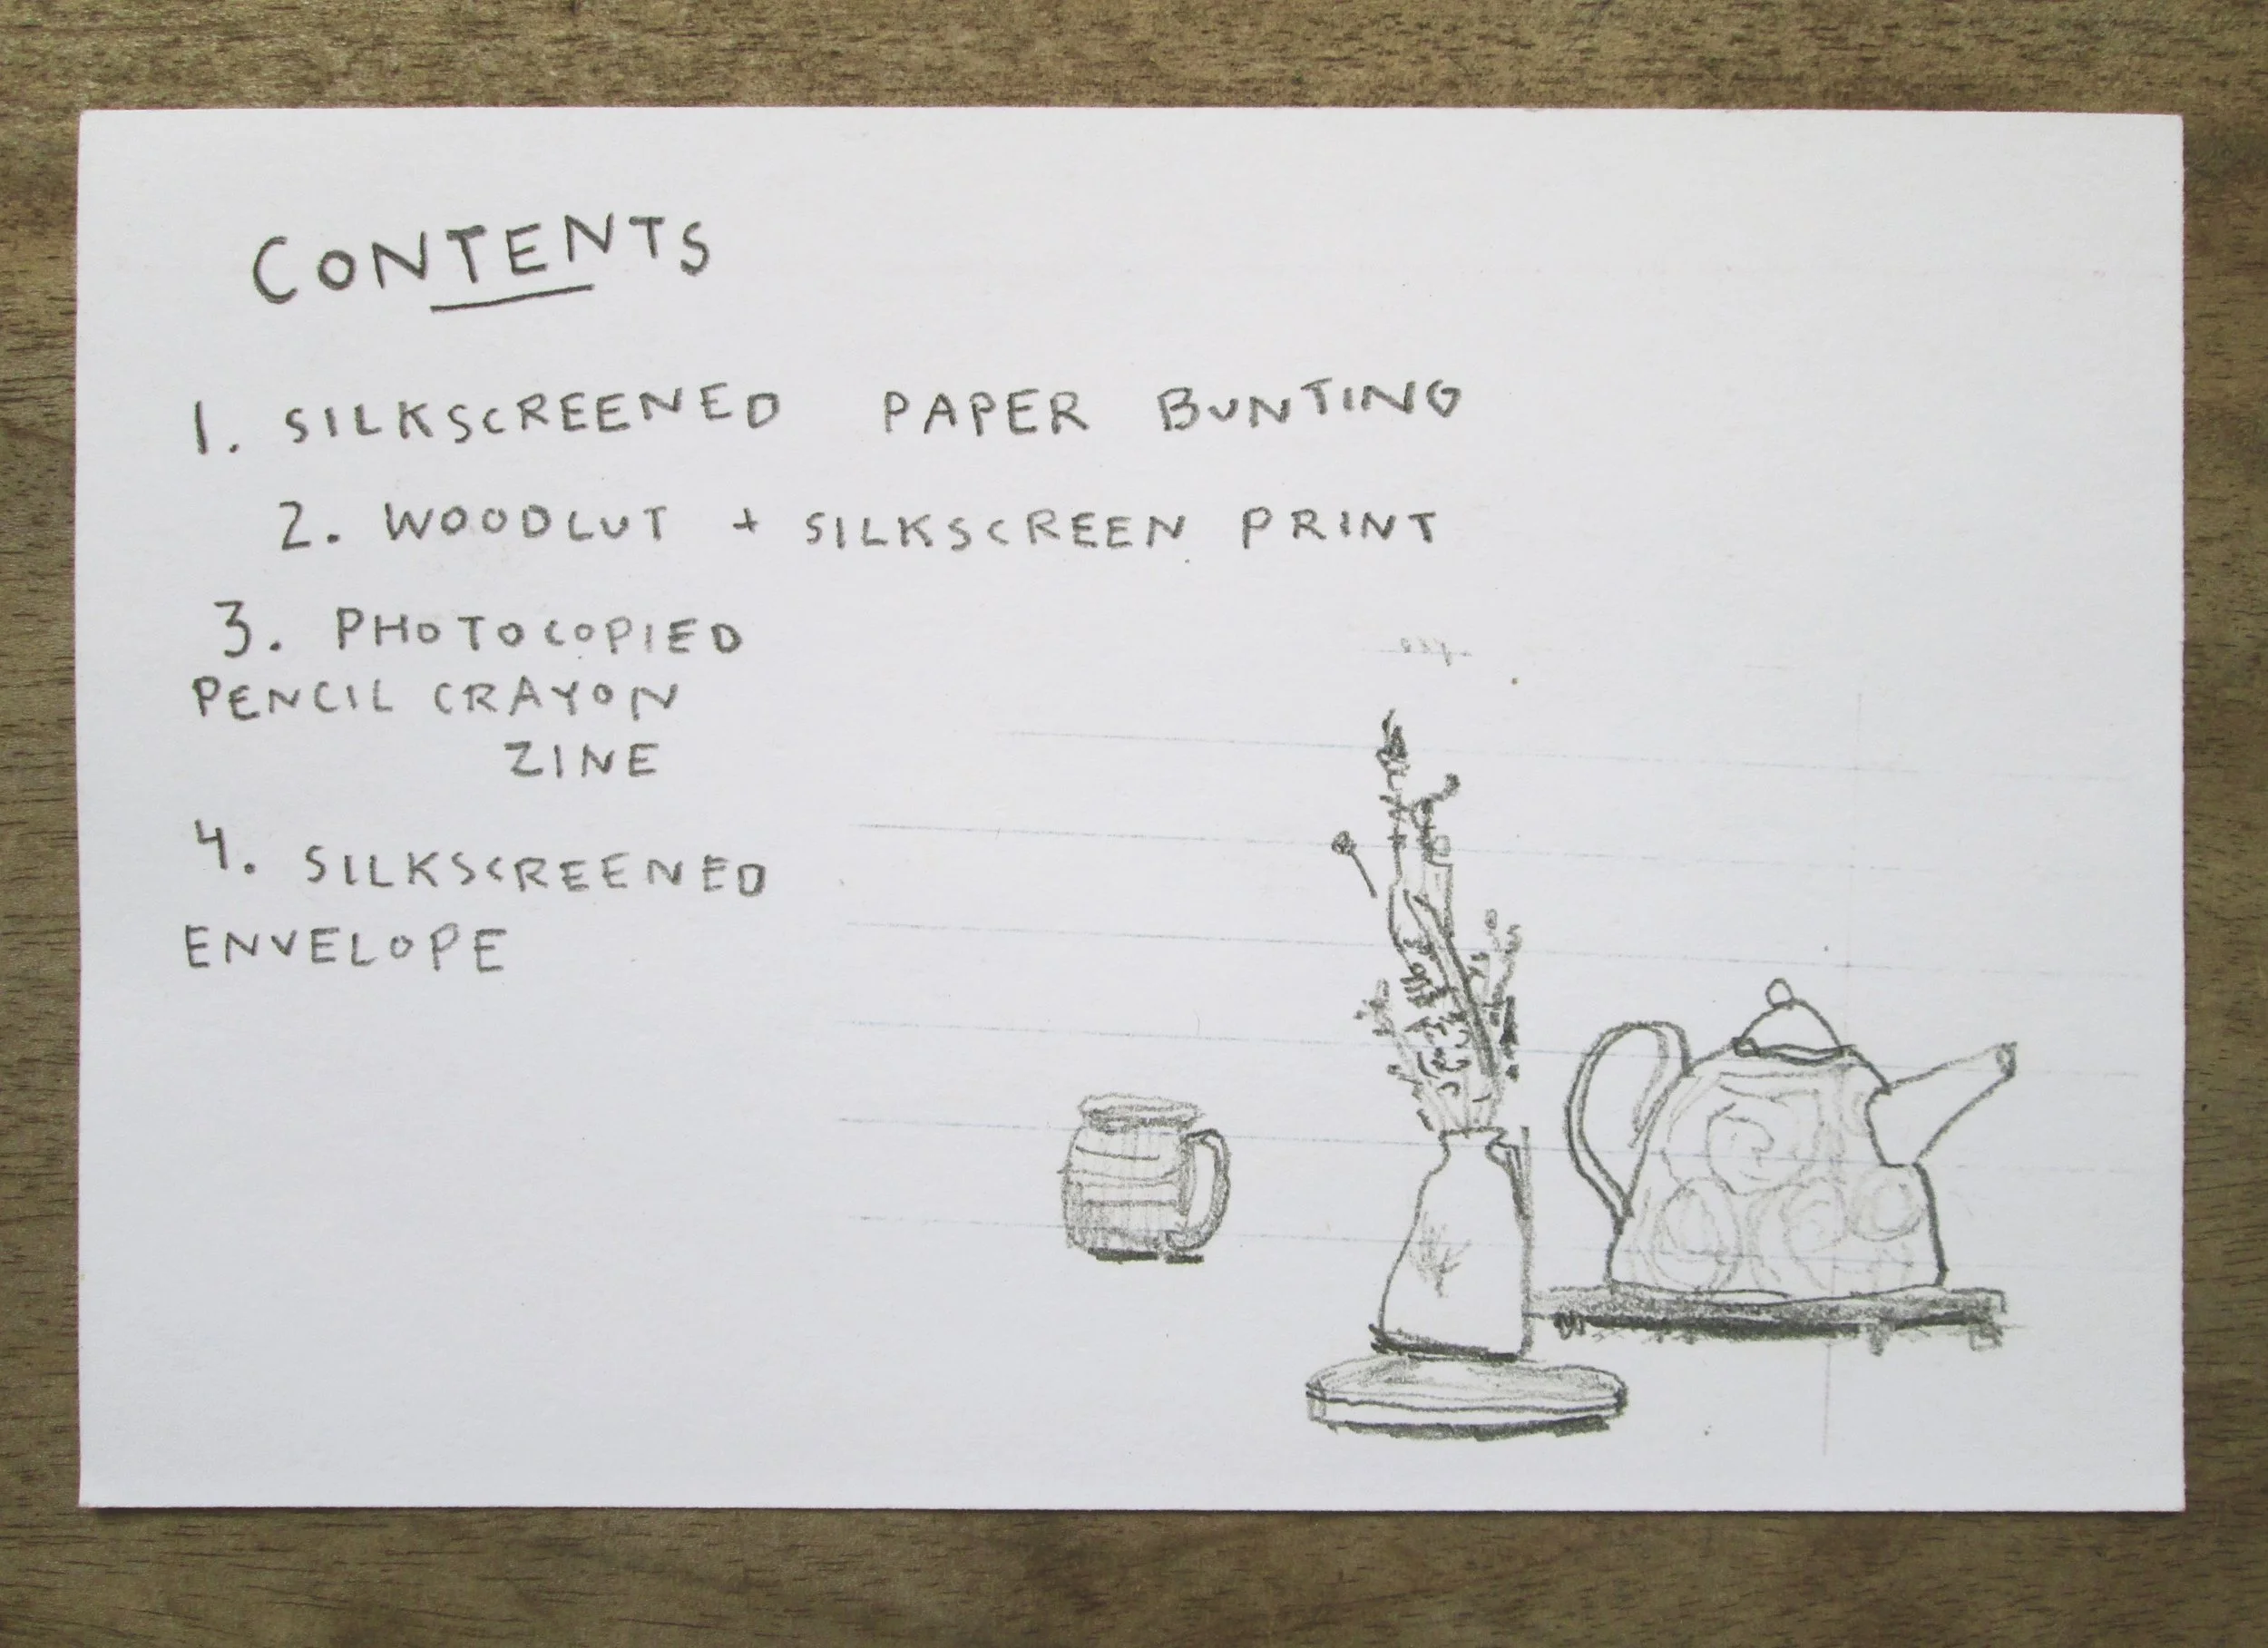 CONTENTS
1. SILKSCREENED PAPER BUNTING
2. WOODCUT + SILKSCREEN PRINT
3. PHOTOCOPIED
PENCIL CRAYON
ZINE
4. SILKSCREENED
ENVELOPE